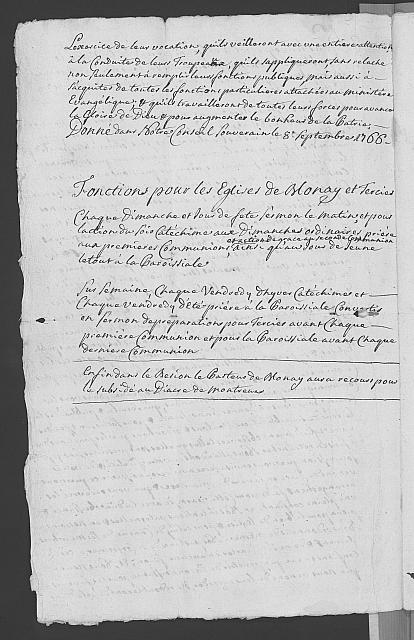 L'exercice de leur vocation, qu'ils veilleront avec une entiere attention
à la Conduite de leurs Troupeaux, qu'ils s'appliqueront sans relache
non seulement à remplir leurs fonctions publiques mais aussi à
s'acquiter de toutes les fonctions particulieres attachées au Ministère
Evangélique, & qu'ils travailleront de toutes leurs forces pour avancer
la Gloire de Dieu & pour augmenter le bonheur de la Patrie.
Donné dans Notre Conseil souverain le 8e Septembre 1766
Fonctions pour les Eglises de Blonay et Tercier
Chaque Dimanche et Jour de fete sermon le Matin et pour
l'action du soir Catéchisme aux Dimanches ordinaires prière
et action de grace aux secondes Communion
aux premieres Communion, ainsi qu'au Jour de Jeune
le tout à la Paroissiale
Sur semaine Chaque Vendredy d'hyver Catéchisme et
Chaque Vendredy d'Eté prière à la Paroissiale Convertis
en sermon de préparations pour Tercier avant Chaque
premiere Communion et pour la Paroissiale avant Chaque
derniere Communion
Enfin dans le Besoin le Pasteur de Blonay aura recours pour
la subside au Diacre de Montreux